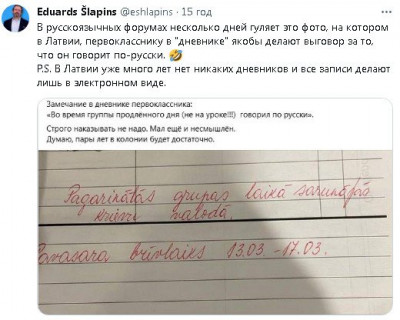 Eduards Šlapins @eshlapins · 15 год
В русскоязычных форумах несколько дней гуляет это фото, на котором
в Латвии, первокласснику в "дневнике" якобы делают выговор за то,
что он говорит по-русски. 🤣
P.S. В Латвии уже много лет нет никаких дневников и все записи делают
лишь в электронном виде.
Замечание в дневнике первоклассника:
«Во время группы продлённого дня (не на уроке!!!) говорил по русски».
Строго наказывать не надо. Мал ещё и несмышлён.
Думаю, пары лет в колонии будет достаточно.
Pagarinātās grupas laikā sarunājās
krievu valodā.
Pavasara brīvlaiks 13.03 – 17.03.